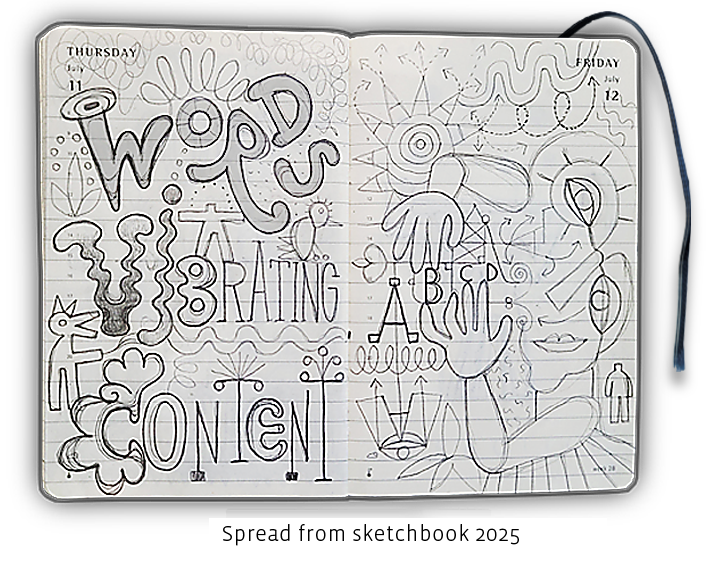 THURSDAY
July
11
WORDS
VIBRATING
CONTENT
FRIDAY
July
12
ABCD
A
8
Spread from sketchbook 2025